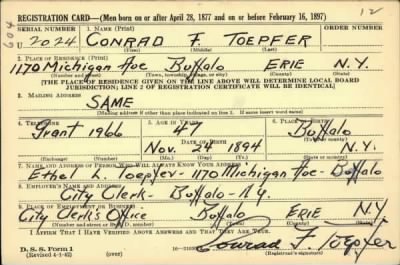 REGISTRATION CARD—(Men born on or after April 28, 1877 and on or before February 16, 1897)
12
604
SERIAL NUMBER 1. NAME (Print) ORDER NUMBER
U 2024 CONRAD F. TOEPFER
(First) (Middle) (Last)
2. PLACE OF RESIDENCE (Print)
1170 Michigan Ave Buffalo ERIE N.Y.
(Number and street) (Town, township, village, or city) (County) (State)
[THE PLACE OF RESIDENCE GIVEN ON THE LINE ABOVE WILL DETERMINE LOCAL BOARD
JURISDICTION; LINE 2 OF REGISTRATION CERTIFICATE WILL BE IDENTICAL]
3. MAILING ADDRESS
SAME
[Mailing address if other than place indicated on line 2. If same insert word same]
4. TELEPHONE 5. AGE IN YEARS 6. PLACE OF BIRTH
Grant 1966 47 Buffalo
DATE OF BIRTH
Nov. 24 1894 N.Y.
(Exchange) (Number) (Mo.) (Day) (Yr.) (State or country)
7. NAME AND ADDRESS OF PERSON WHO WILL ALWAYS KNOW YOUR ADDRESS
Ethel L. Toepfer - 1170 Michigan Ave - Buffalo
8. EMPLOYER'S NAME AND ADDRESS
City Clerk - Buffalo - N.Y.
9. PLACE OF EMPLOYMENT OR BUSINESS
City Clerk's Office Buffalo ERIE N.Y.
(Number and street or R. F. D. number) (Town) (County) (State)
I AFFIRM THAT I HAVE VERIFIED ABOVE ANSWERS AND THAT THEY ARE TRUE.
D. S. S. Form 1
(Revised 4-1-42) (over)
Conrad F. Toepfer
(Registrant's signature)